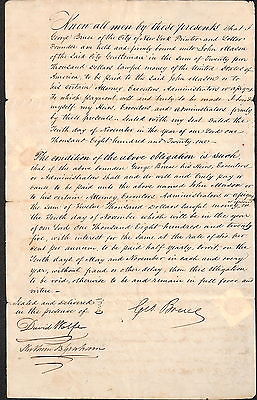 Know all men by these presents That I
George Bruce of the City of New York Printer and Letter
Founder am held and firmly bound unto John Mason
of the said City Gentleman in the sum of Twenty four
thousand dollars lawful money of the United States of
America, to be paid to the said John Mason or to
his certain Attorney Executors Administrators or assigns
to which payment, well and truly to be made, I bind
myself my Heirs, Executors and administrators firmly
by these presents. Sealed with my Seal. Dated the
Tenth day of November in the year of our Lord one
Thousand Eight hundred and Twenty one.
The condition of the above obligation is such
that if the above bounden George Bruce his Heirs, Executors
or Administrators shall and do well and truly pay or
cause to be paid unto the above named John Mason or
to his certain Attorney Executors Administrators or assigns
the sum of Twelve Thousand dollars lawful money on the
Tenth day of November which will be in the year
of our Lord one Thousand Eight Hundred and Twenty
five, with interest for the same at the rate of six
per cent per annum to be paid half yearly, to wit, on the
Tenth days of May and November in each and every
year, without fraud or other delay, then this obligation
to be void, otherwise to be and remain in full force and
virtue.
Sealed and delivered
in the presence of
Geo. Bruce
David Wolfe